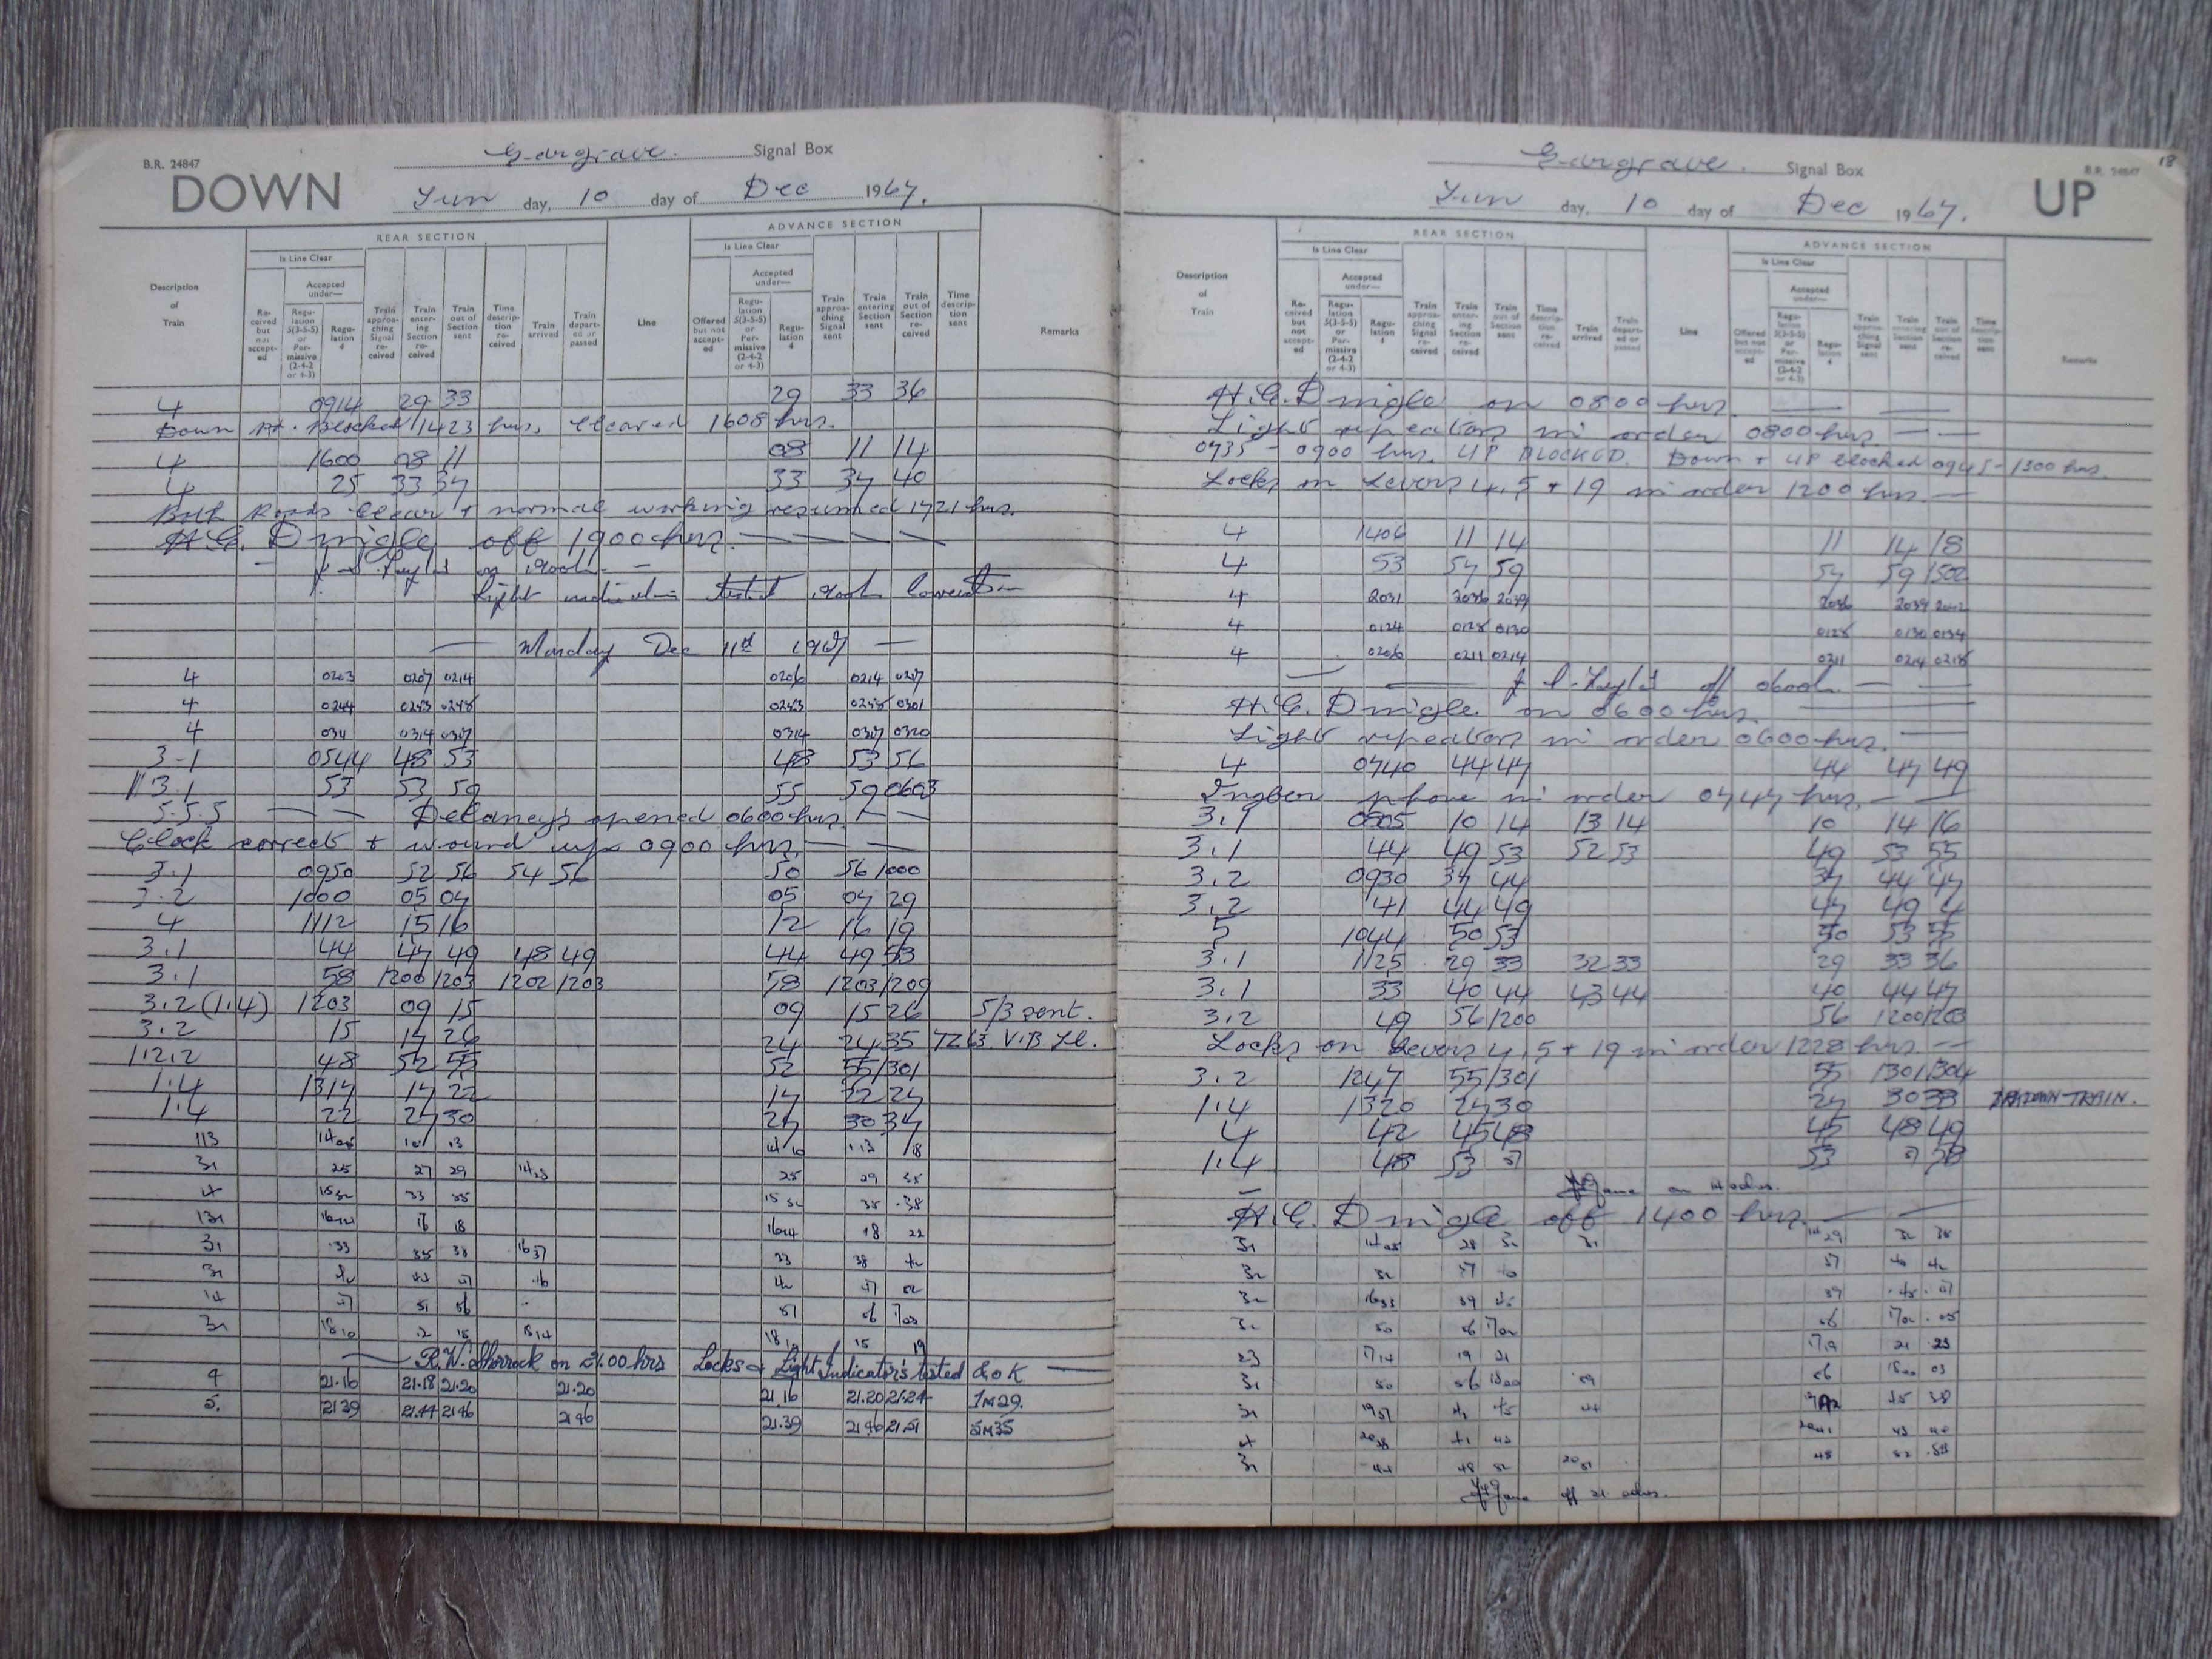 B.R. 24847
Gargrave. Signal Box
DOWN
Sun day, 10 day of Dec 1967.
REAR SECTION
ADVANCE SECTION
Is Line Clear
Is Line Clear
Accepted under—
Accepted under—
Description of Train
Re-ceived but not accept-ed
Regu-lation 5(3-5-5) or Per-missive (2-4-2 or 4-3)
Regu-lation 4
Train approa-ching Signal re-ceived
Train enter-ing Section re-ceived
Train out of Section sent
Time descrip-tion re-ceived
Train arrived
Train depart-ed or passed
Line
Offered but not accept-ed
Regu-lation 5(3-5-5) or Per-missive (2-4-2 or 4-3)
Regu-lation 4
Train approa-ching Signal sent
Train entering Section sent
Train out of Section re-ceived
Time descrip-tion sent
Remarks
4 0914 29 33 29 33 36
Down Rd. Blocked 1423 hrs, Cleared 1608 hrs.
4 1600 08 11 08 11 14
4 25 33 37 33 37 40
Both Roads Clear + normal working resumed 1721 hrs.
H.C. Dingle off 1900 hrs.
Light indicators tested
Monday Dec 11th 1967
4 0203 0207 0214 0206 0214 0217
4 0244 0253 0258 0253 0258 0301
4 0314 0317 0314 0317 0320
3-1 0544 48 53 48 53 56
3.1 53 53 59 55 59 0603
5.5.5 Delaney's opened 0600 hrs.
Clock correct + wound up 0900 hrs.
3.1 0950 52 56 54 56 50 56 1000
3.2 1000 05 07 05 07 29
4 1112 15 16 12 16 19
3.1 44 47 49 48 49 44 49 53
3.1 58 1200 1203 1202 1203 58 1203 1209
3.2 (1.4) 1203 09 15 09 15 26 5/3 sent.
3.2 15 17 26 24 24 35 7Z63 V.B
1.2.2 48 52 55 52 55 1301
1.4 1317 17 22 17 22 27
1.4 22 27 30 27 30 37
113 13 14 10 13 18
31 25 27 29 25 29 35
4 33 35 35 38
131 16 18 18 22
31 33 35 38 1637 33 38
31
14 51 56 51 56 1703
31 1810 12 15 1814 1810 15 19
R.W. Shorrock on 21.00 hrs Locks & Light Indicator's tested & O K
4 21.16 21.18 21.20 21.20 21.16 21.20 21.24 1M29.
5. 2139 21.44 2146 2146 21.39 2146 2151 5M35
18
Gargrave. Signal Box
B.R. 24847
Sun day, 10 day of Dec 1967.
UP
REAR SECTION
ADVANCE SECTION
Is Line Clear
Is Line Clear
Accepted under—
Accepted under—
Description of Train
Re-ceived but not accept-ed
Regu-lation 5(3-5-5) or Per-missive (2-4-2 or 4-3)
Regu-lation 4
Train approa-ching Signal re-ceived
Train enter-ing Section re-ceived
Train out of Section sent
Time descrip-tion re-ceived
Train arrived
Train depart-ed or passed
Line
Offered but not accept-ed
Regu-lation 5(3-5-5) or Per-missive (2-4-2 or 4-3)
Regu-lation 4
Train approa-ching Signal sent
Train entering Section sent
Train out of Section re-ceived
Time descrip-tion sent
Remarks
H.C. Dingle on 0800 hrs.
Light repeators in order 0800 hrs.
0735 - 0900 hrs. UP BLOCKED. Down + UP blocked 0945 - 1300 hrs.
Locks on Levers 4, 5 + 19 in order 1200 hrs.
4 1406 11 14 11 14 18
4 53 57 59 57 59 1502
4 2031 2036 2039 2036 2039 2042
4 0124 0128 0130 0128 0130 0134
4 0206 0211 0214 0211 0214 0218
off 0600h
H.C. Dingle on 0600 hrs.
Light repeators in order 0600 hrs.
4 0740 44 47 44 47 49
Ingber phone in order 0747 hrs.
3.1 0805 10 14 13 14 10 14 16
3.1 44 49 53 52 53 49 53 55
3.2 0930 37 44 37 44 47
3.2 41 44 49 47 49
5 1044 50 53 50 53 55
3.1 1125 29 33 32 33 29 33 36
3.1 33 40 44 43 44 40 44 47
3.2 49 56 1200 56 1200 1203
Locks on Levers 4, 5 + 19 in order 1228 hrs
3.2 1247 55 1301 55 1301 1304
1.4 1320 27 30 27 30 33 TRAIN.
4 42 45 48 45 48 49
1.4 48 53 57 53 57 58
H.C. Dingle off 1400 hrs.
31 28 1429
32
32 1633 39 39
32 50 56 1702 56 1702 05
23 1714 19 21 1719 21 23
31 50 56 1800 56 1800 03
31 1937
2038
31 48 52 2051 48 52